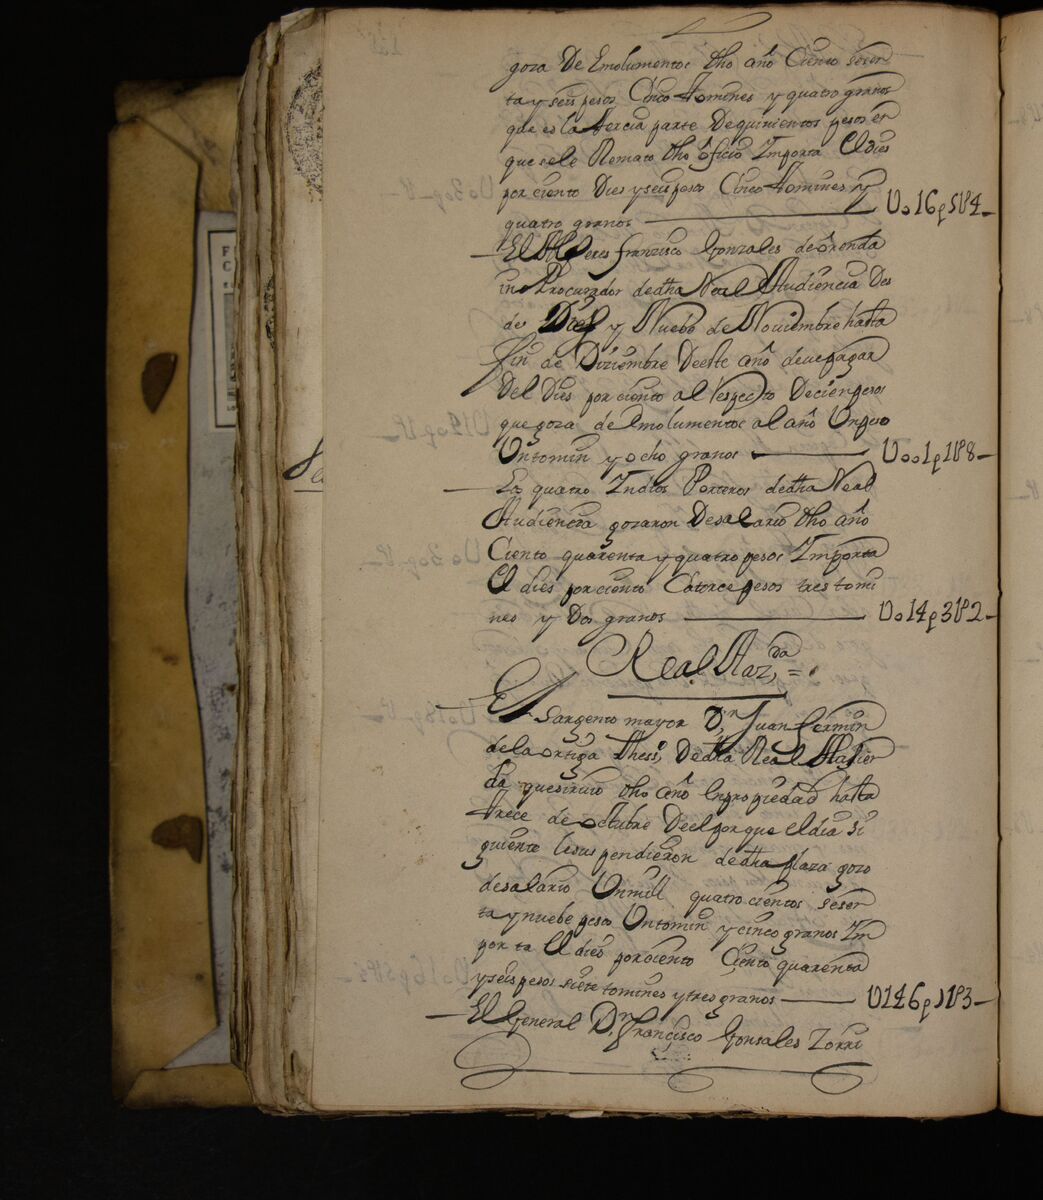 goza De Emolumentos dho año Ciento sesen
ta y seis pesos Cinco tomines y quatro granos
que es la tercia parte De quinientos pesos en
que se le Remato dho officio Importa El dies
por ciento Dies y seis pesos Cinco tomines y
quatro granos U o 16 p 5 t 4
El Alferes francisco Gonzales de
Procurador de dha Real Audiencia Des
de Diez y Nuebe de Noviembre hasta
fin de Diziembre Deeste año deve pagar
Del Dies por ciento al respecto De cien pesos
que goza de Emolumentos al año Un peso
Un tomin y ocho granos U o o 1 p 1 t 8
Los quatro Indios Porteros de dha Real
Audiencia gozaron De salario dho año
Ciento quarenta y quatro pesos Importa
El dies por ciento Catorce pesos tres tomi
nes y Dos granos U o 14 p 3 t 2
Real Haz.da =
El Sargento mayor D.n Juan fermin
de la ortiga thess.o De dha Real Hazien
da que sirvio dho año En propiedad hasta
trece de octubre Del porque el dia si
guiente le suspendieron de dha plaza gozo
de salario Un mill quatrocientos sesen
ta y nuebe pesos Un tomin y cinco granos Im
porta El dies por ciento Ciento quarenta
y seis pesos siete tomines y tres granos U 146 p 7 t 3
El General D.n francisco Gonsales Zorri